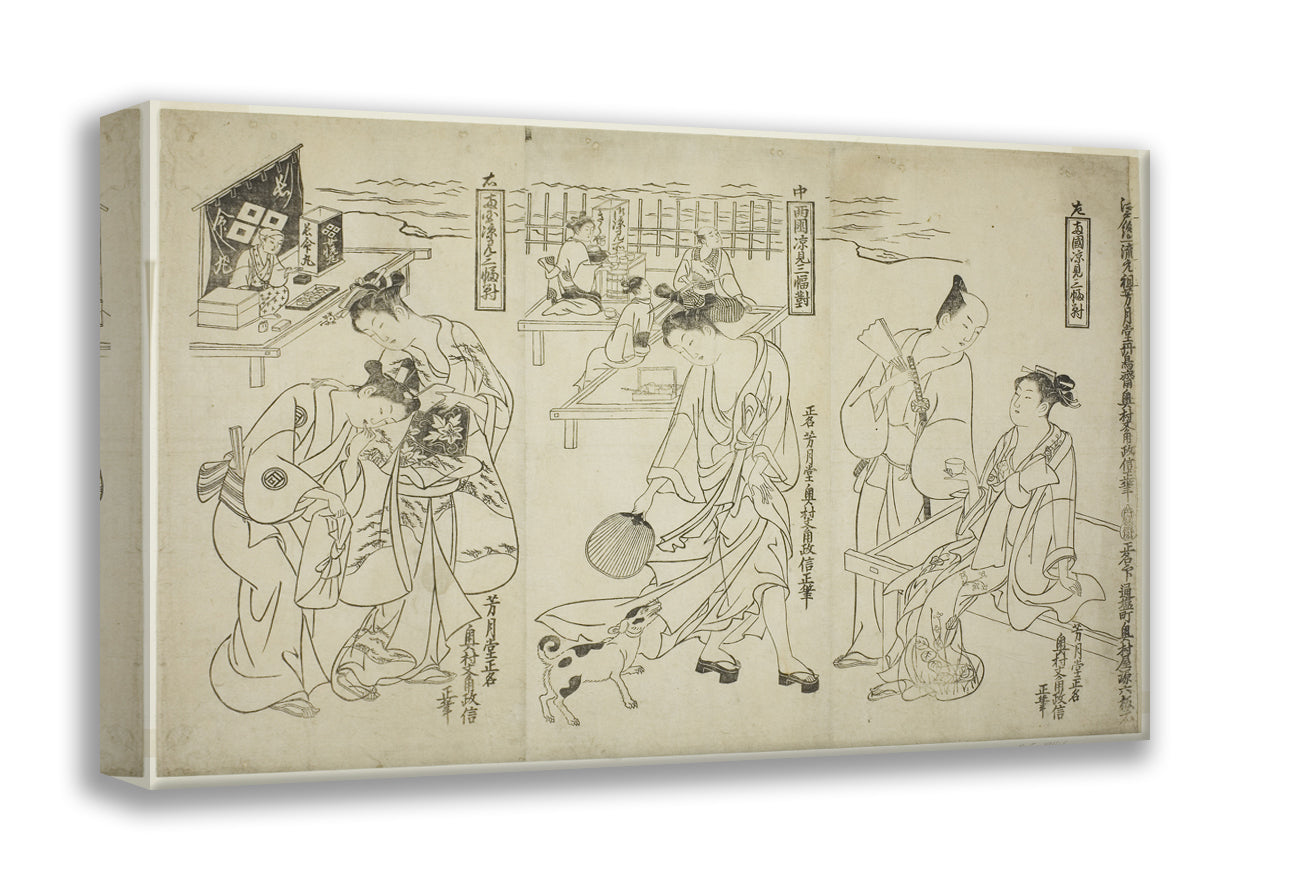 右
両国涼見三幅對
芳月堂正名
奥村文角政信
正筆
中
両國涼見三幅對
正名芳月堂奥村文角政信正筆
左
両國涼見三幅對
芳月堂正名
奥村文角政信
正筆
芳月堂丹鳥齋奥村文角政信正筆
正名下
通塩町奥村屋源六板